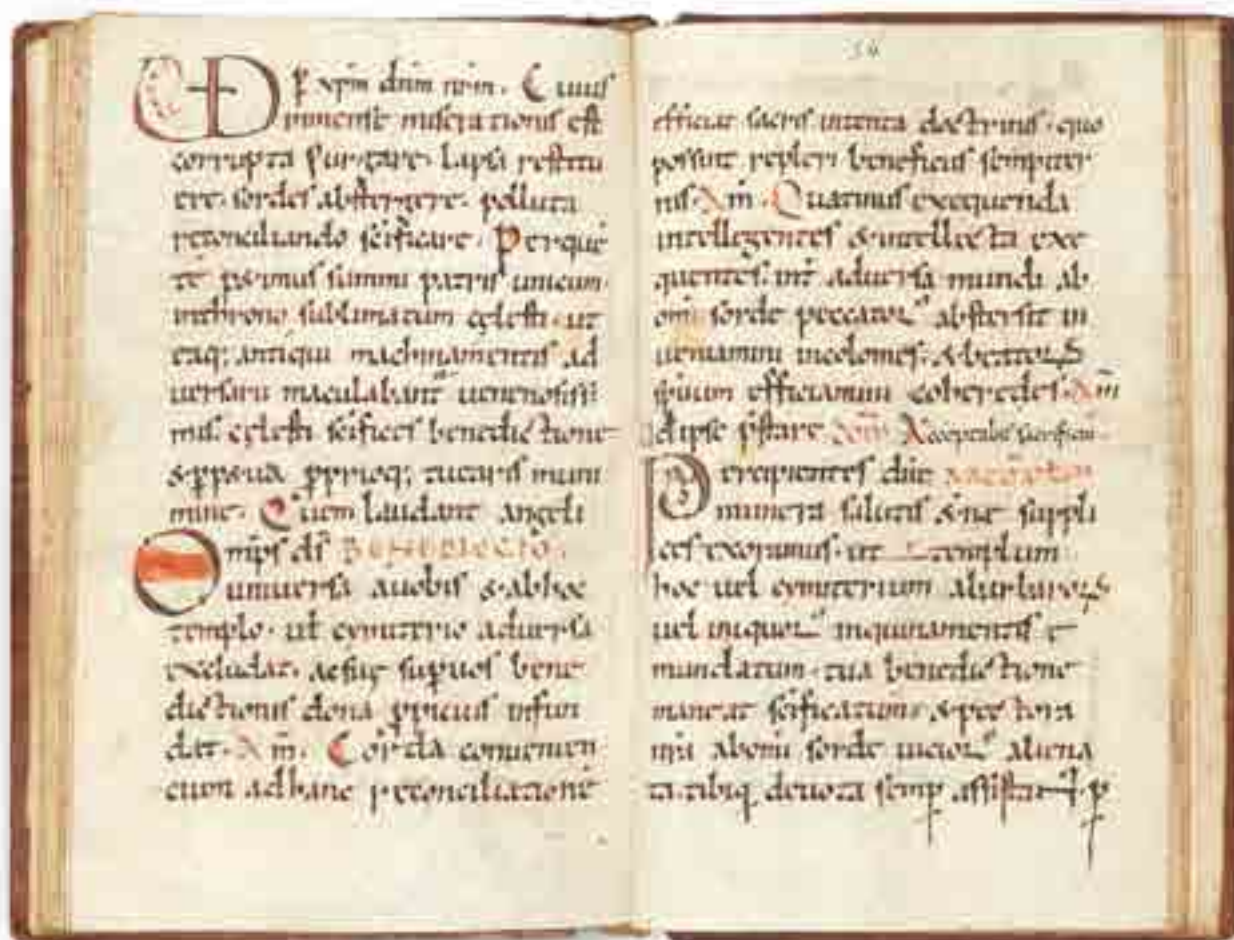 p xpm dnm nrm. Cuius
inmense miserationis est
corrupta purgare. lapsa restitu
ere. sordes abstergere. polluta
reconciliando scificare. Per que
te possimus summi patris unicum
inthrono sublimatum cęlesti. ut
eaq; antiqui machinamentis ad
uersarii maculabant uenenosissi
mis. cęlesti scifices benedictione
& ppetua pprioq; tuearis muni
mine. Quem laudant angeli
Omps ds BENEDICTIO
uniuersa a uobis & ab hoc
templo. ut cymiterio aduersa
excludat. ac suę sup uos bene
dictionis dona ppicius infun
dat. Am. Corda conuenien
cium ad hanc reconciliatione
54
efficiat sacris intenta doctrinis. quo
possint repleri beneficiis sempiter
nis. Am. Quatinus exequenda
intellegentes & intellecta exe
quentes. int aduersa mundi ab
omi sorde peccator abstersit in
ueniamini incolomes. & beator
spirituum efficiamini coheredes. Am
d ipse pstare com Acceptabis sacrificiu
Percipientes dne
munera salutis & ne suppli
ces exoramus. ut templum
hoc uel cymiterium
uel iniquor inquinamentis e
mundatum. tua benedictione
maneat scificatum. & pectora
nra ab omi sorde uicior aliena
ta. tibiq deuota semp assistant. p